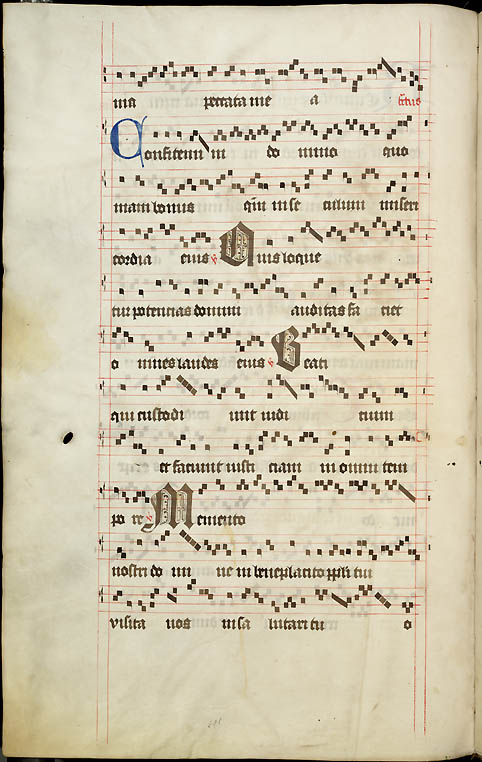 mia peccata me a
Confitemini do mino quo
niam bonus qm in se culum miseri
cordia eius Quis loque
tur potencias domini auditas fa ciet
o mnes laudes eius Beati
qui custodi unt iudi cium
et faciunt iusti ciam in omni tem
po re Memento
nostri do mi ne in beneplacito ppli tui
visita nos in sa lutari tu o